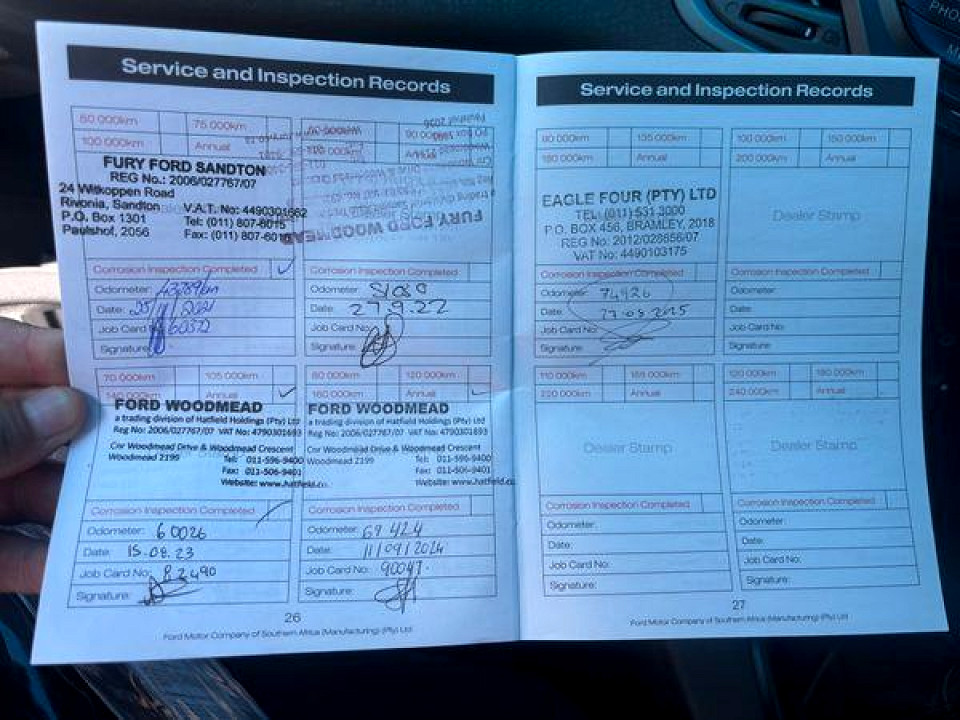 Service and Inspection Records
50 000km 75 000km
100 000km Annual
FURY FORD SANDTON
REG No.: 2006/027767/07
24 Witkoppen Road
Rivonia, Sandton V.A.T. No: 4490301662
P.O. Box 1301 Tel: (011) 807-6015
Paulshof, 2056 Fax: (011) 807-6016
Corrosion Inspection Completed
Odometer: 43789km
Date: 25/11/2021
Job Card No: 60372
Signature:
60 000km 90 000km
Annual
FURY FORD WOODMEAD
Paulshof 2056
Corrosion Inspection Completed
Odometer:
Date: 27.9.22
Job Card No:
Signature:
70 000km 105 000km
140 000km Annual
FORD WOODMEAD
a trading division of Hatfield Holdings (Pty) Ltd
Reg No: 2006/027767/07 VAT No: 4790301693
Cnr Woodmead Drive & Woodmead Crescent
Woodmead 2199 Tel: 011-596-9400
Fax: 011-506-9401
Website: www.hatfield.co.
Corrosion Inspection Completed
Odometer: 60026
Date: 15.08.23
Job Card No: 82490
Signature:
80 000km 120 000km
160 000km Annual
FORD WOODMEAD
a trading division of Hatfield Holdings (Pty) Ltd
Reg No: 2006/027767/07 VAT No: 4790301693
Cnr Woodmead Drive & Woodmead Crescent
Woodmead 2199 Tel: 011-596-9400
Fax: 011-506-9401
Website: www.hatfield.co.
Corrosion Inspection Completed
Odometer: 69424
Date: 11/09/2024
Job Card No: 90047
Signature:
26
Ford Motor Company of Southern Africa (Manufacturing) (Pty) Ltd
Service and Inspection Records
90 000km 135 000km
180 000km Annual
EAGLE FOUR (PTY) LTD
TEL: (011) 531 3000
P.O. BOX 456, BRAMLEY, 2018
REG No: 2012/028656/07
VAT No: 4490103175
Corrosion Inspection Completed
Odometer: 74926
Date: 27-08-2025
Job Card No:
Signature:
100 000km 150 000km
200 000km Annual
Dealer Stamp
Corrosion Inspection Completed
Odometer:
Date:
Job Card No:
Signature:
110 000km 165 000km
220 000km Annual
Dealer Stamp
Corrosion Inspection Completed
Odometer:
Date:
Job Card No:
Signature:
120 000km 180 000km
240 000km Annual
Dealer Stamp
Corrosion Inspection Completed
Odometer:
Date:
Job Card No:
Signature:
27
Ford Motor Company of Southern Africa (Manufacturing) (Pty) Ltd